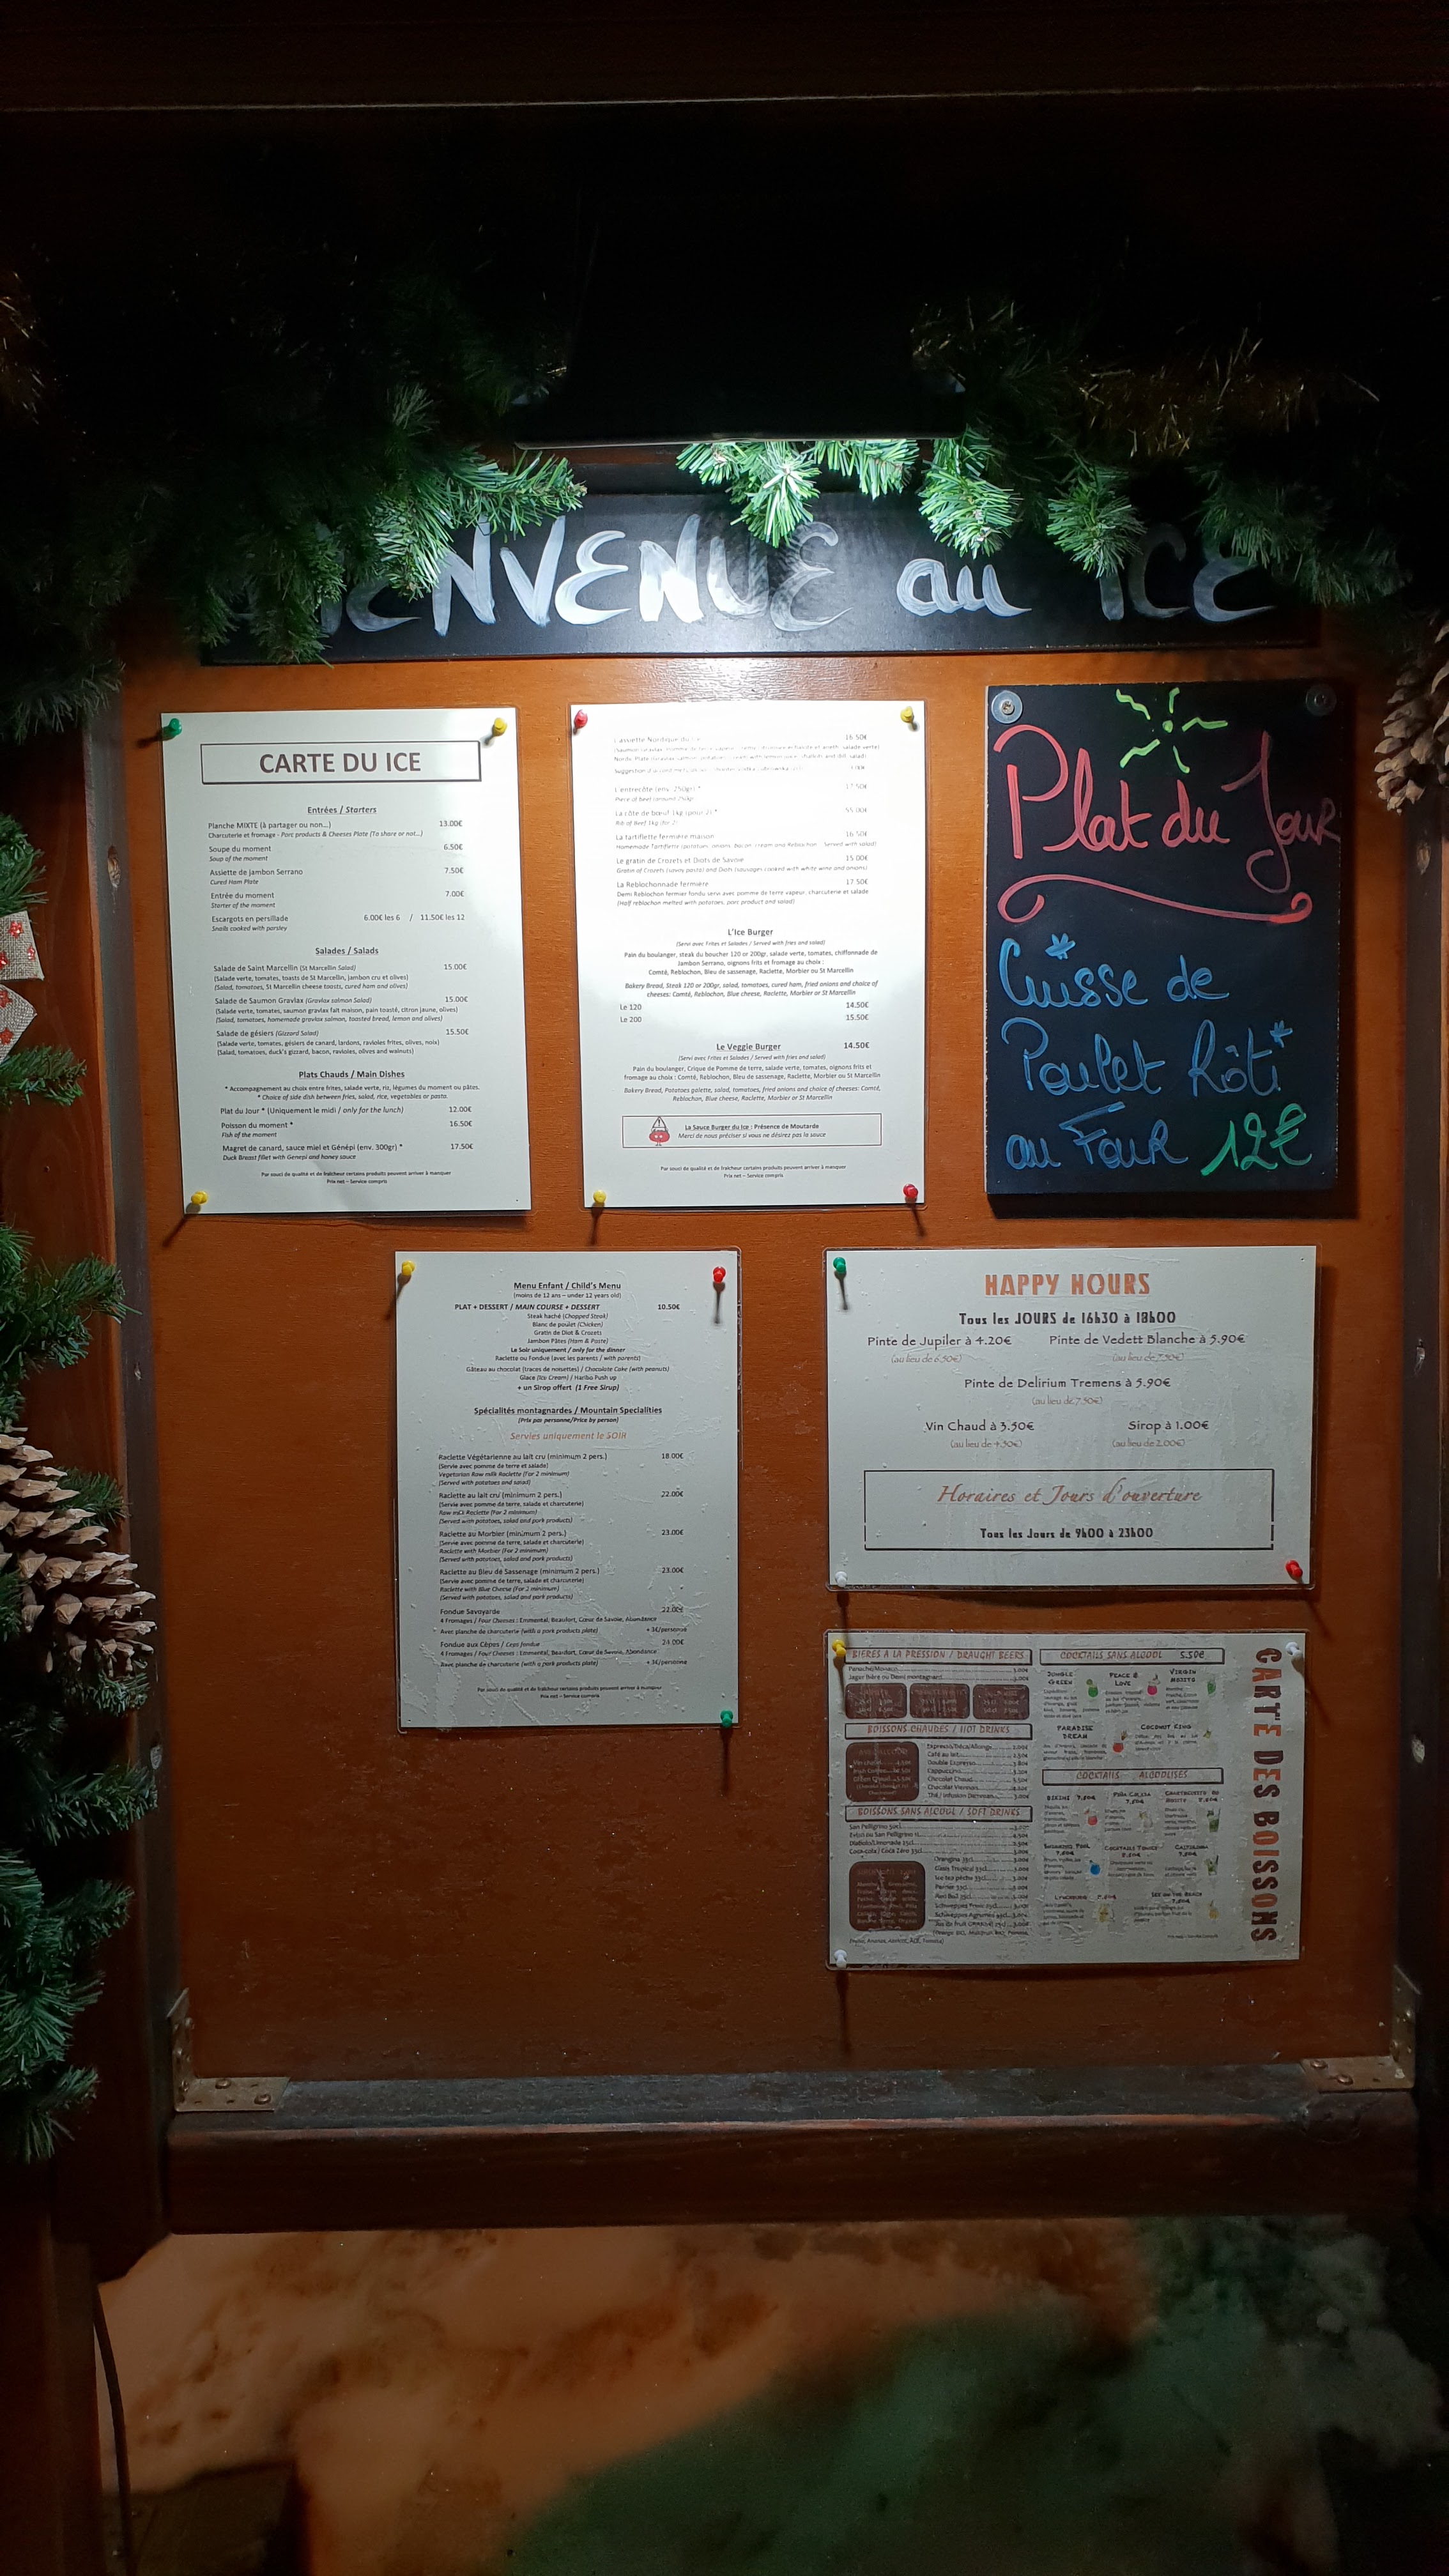 BIENVENUE au ICE
CARTE DU ICE
Entrées / Starters
Planche MIXTE (à partager ou non...) 13.00€
Charcuterie et fromage - Porc products & Cheeses Plate (To share or not...)
Soupe du moment 6.50€
Soup of the moment
Assiette de jambon Serrano 7.50€
Cured Ham Plate
Entrée du moment 7.00€
Starter of the moment
Escargots en persillade 6.00€ les 6 / 11.50€ les 12
Snails cooked with parsley
Salades / Salads
Salade de Saint Marcellin (St Marcellin Salad) 15.00€
(Salade verte, tomates, toasts de St Marcellin, jambon cru et olives)
(Salad, tomatoes, St Marcellin cheese toasts, cured ham and olives)
Salade de Saumon Gravlax (Gravlax salmon Salad) 15.00€
(Salade verte, tomates, saumon gravlax fait maison, pain toasté, citron jaune, olives)
(Salad, tomatoes, homemade gravlax salmon, toasted bread, lemon and olives)
Salade de gésiers (Gizzard Salad) 15.50€
(Salade verte, tomates, gésiers de canard, lardons, ravioles frites, olives, noix)
(Salad, tomatoes, duck's gizzard, bacon, ravioles, olives and walnuts)
Plats Chauds / Main Dishes
* Accompagnement au choix entre frites, salade verte, riz, légumes du moment ou pâtes.
* Choice of side dish between fries, salad, rice, vegetables or pasta.
Plat du Jour * (Uniquement le midi / only for the lunch) 12.00€
Poisson du moment * 16.50€
Fish of the moment
Magret de canard, sauce miel et Génépi (env. 300gr) * 17.50€
Duck Breast fillet with Genepi and honey sauce
Par souci de qualité et de fraîcheur certains produits peuvent arriver à manquer
Prix net – Service compris
L'assiette Nordique du 16.50€
L'entrecôte (env. 250gr) * 17.50€
Piece of beef (around 250g)
La côte de bœuf 1kg (pour 2) * 55.00€
Rib of Beef 1kg (for 2)
La tartiflette fermière maison 16.50€
Homemade Tartiflette (potatoes, onions, Bacon, cream and Reblochon - Served with salad)
Le gratin de Crozets et Diots de Savoie 15.00€
Gratin of Crozets (savoy pasta) and Diots (sausages cooked with white wine and onions)
La Reblochonnade fermière 17.50€
Demi Reblochon fermier fondu servi avec pomme de terre vapeur, charcuterie et salade
(Half reblochon melted with potatoes, porc product and salad)
L'Ice Burger
(Servi avec Frites et Salades / Served with fries and salad)
Pain du boulanger, steak du boucher 120 or 200gr, salade verte, tomates, chiffonnade de
Jambon Serrano, oignons frits et fromage au choix :
Comté, Reblochon, Bleu de sassenage, Raclette, Morbier ou St Marcellin
Bakery Bread, Steak 120 or 200gr, salad, tomatoes, cured ham, fried onions and choice of
cheeses: Comté, Reblochon, Blue cheese, Raclette, Morbier or St Marcellin
Le 120 14.50€
Le 200 15.50€
Le Veggie Burger 14.50€
(Servi avec Frites et Salades / Served with fries and salad)
Pain du boulanger, Crique de Pomme de terre, salade verte, tomates, oignons frits et
fromage au choix : Comté, Reblochon, Bleu de sassenage, Raclette, Morbier ou St Marcellin
Bakery Bread, Potatoes galette, salad, tomatoes, fried onions and choice of cheeses: Comté,
Reblochon, Blue cheese, Raclette, Morbier or St Marcellin
La Sauce Burger du Ice : Présence de Moutarde
Merci de nous préciser si vous ne désirez pas la sauce
Par souci de qualité et de fraîcheur certains produits peuvent arriver à manquer
Prix net – Service compris
Plat du Jour
Cuisse de
Poulet Rôti
au Four 12€
Menu Enfant / Child's Menu
(moins de 12 ans – under 12 years old)
PLAT + DESSERT / MAIN COURSE + DESSERT 10.50€
Steak haché (Chopped Steak)
Blanc de poulet (Chicken)
Gratin de Diot & Crozets
Jambon Pâtes (Ham & Paste)
Le Soir uniquement / only for the dinner
Raclette ou Fondue (avec les parents / with parents)
Gâteau au chocolat (traces de noisettes) / Chocolate Cake (with peanuts)
Glace (Ice Cream) / Haribo Push up
+ un Sirop offert (1 Free Sirup)
Spécialités montagnardes / Mountain Specialities
(Prix par personne/Price by person)
Servies uniquement le SOIR
Raclette Végétarienne au lait cru (minimum 2 pers.) 18.00€
(Servie avec pomme de terre et salade)
Vegetarian Raw milk Raclette (For 2 minimum)
(Served with potatoes and salad)
Raclette au lait cru (minimum 2 pers.) 22.00€
(Servie avec pomme de terre, salade et charcuterie)
Raw milk Raclette (For 2 minimum)
(Served with potatoes, salad and pork products)
Raclette au Morbier (minimum 2 pers.) 23.00€
(Servie avec pomme de terre, salade et charcuterie)
Raclette with Morbier (For 2 minimum)
(Served with potatoes, salad and pork products)
Raclette au Bleu de Sassenage (minimum 2 pers.) 23.00€
(Servie avec pomme de terre, salade et charcuterie)
Raclette with Blue Cheese (For 2 minimum)
(Served with potatoes, salad and pork products)
Fondue Savoyarde 22.00€
4 Fromages / Four Cheeses : Emmental, Beaufort, Cœur de Savoie, Abondance
Avec planche de charcuterie (with a pork products plate) +3€/personne
Fondue aux Cèpes / Ceps fondue 24.00€
4 Fromages / Four Cheeses : Emmental, Beaufort, Cœur de Savoie, Abondance
Avec planche de charcuterie (with a pork products plate) +3€/personne
Par souci de qualité et de fraîcheur certains produits peuvent arriver à manquer
Prix net – Service compris
HAPPY HOURS
Tous les JOURS de 16h30 à 18h00
Pinte de Jupiler à 4.20€ Pinte de Vedett Blanche à 5.90€
(au lieu de 6.50€) (au lieu de 7.50€)
Pinte de Delirium Tremens à 5.90€
(au lieu de 7.50€)
Vin Chaud à 3.50€ Sirop à 1.00€
(au lieu de 4.50€) (au lieu de 2.00€)
Horaires et Jours d'ouverture
Tous les Jours de 9h00 à 23h00
CARTE DES BOISSONS
BIERES A LA PRESSION / DRAUGHT BEERS
Panaché/Monaco
BOISSONS CHAUDES / HOT DRINKS
Café au lait
Double Espresso
Cappuccino
Chocolat Chaud
Chocolat Viennois
BOISSONS SANS ALCOOL / SOFT DRINKS
San Pellegrino 50cl
Coca-cola / Coca Zéro 33cl
COCKTAILS SANS ALCOOL 5.50€
JUNGLE GREEN
PEACE & LOVE
VIRGIN MOJITO
PARADISE DREAM
COCONUT KING
COCKTAILS ALCOOLISES